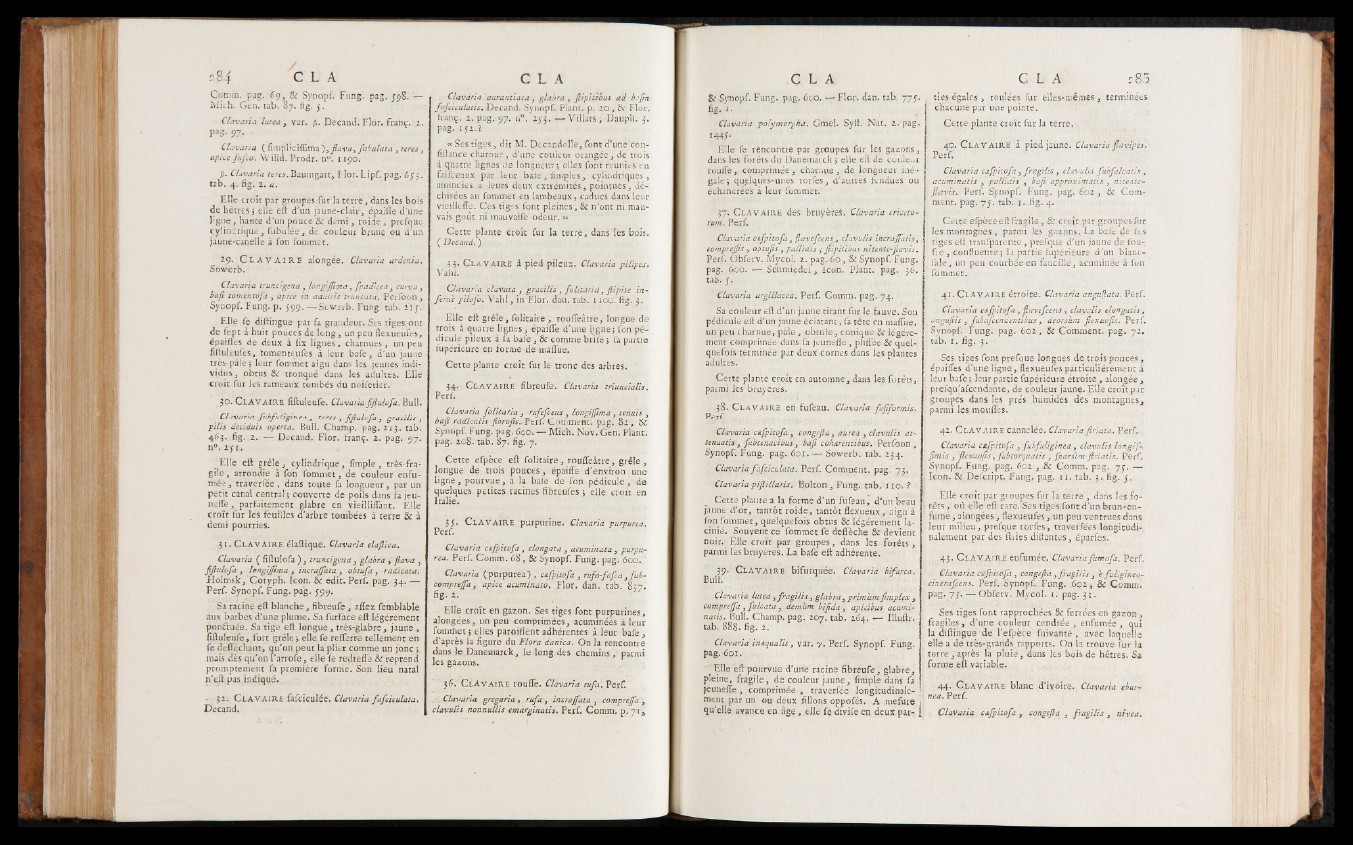 284 C L A
Comm. pag. 69, & Synopf. Fung. pag. 598. —
Mich. Gen. tab. 87. fig. 5.
Clavaria lutea, var. β. Decand. Flor. franç. 2.
pag. 97.
Clavaria ( fimpliciffima ), flava, fubulata, teres,
apice fufco. Willd. Prodr. n°. 1190.
β. Clavaria teres. Baumgart, Flor. Lipf. pag. 653.
tab. 4. fig. 2. a.
Elle croît par groupes fur la terre, dans les bois
de hêtres; elle eft d'un jaune-clair, épaiffe d'une
ligne, haute d'un pouce & demi, roide, prefque
cylindrique, fubulée, de couleur brune ou d'un
jaune-canelle à fon fommet.
29. CLAVAIRE alongée. Clavaria ardenia.
Sowerb.
Clavaria truncigena, longiffima, fpadicea, curva,
bafi tomentofa, apice in adultis truncata. Perfoon,
Synopf. Fung. p. 599. — Sowerb. Fung. tab. 215.
Elle fe diftingue par fa grandeur. Ses tiges ont
de fept à huit pouces de long, un peu flexueufes,
épaiffes de deux à fix lignes, charnues, un peu
fiftuleufes, tomenteufes à leur bafe, d'un jaune
très-pâle; leur fommet aigu dans les jeunes indi-
vidus, obtus & tronqué dans les adultes. Elle
croît fur les rameaux tombés du noifetier.
30. CLAVAIRE fiftuleufe. Clavaria fiftulofa. Bull.
Clavaria fubfuliginea, teres, fiftulofa, gracilis,
pilis deciduis operta. Bull. Champ. pag. 213. tab.
463. fig. 2. — Decand. Flor. franç. 2. pag. 97.
n°. 251.
Elle eft grêle, cylindrique, fimple, très-fra-
gile, arrondie à fon fommet, de couleur enfu-
mée, traverfée, dans toute fa longueur, par un
petit canal central; couverte de poils dans fa jeu-
neffe, parfaitement glabre en vieilliffant. Elle
croît fur les feuilles d'arbre tombées à terre & à
demi pourries.
31. CLAVAIRE élaftique. Clavaria elaftica.
Clavaria ( fiftulofa ), truncigena, glabra, flava,
fiftulofa, longiffima, incraffata, obtufa, radicata.
Holmsk, Coryph. Icon. & edit. Perf. pag. 34. —
Perf. Synopf. Fung. pag. 599.
Sa racine eft blanche, fibreufe, affez femblable
aux barbes d'une plume. Sa furface eft légérement
ponctuée. Sa tige eft longue, très-glabre, jaune,
fiftuleufe, fort grêle; elle fe refferre tellement en
fe defféchant, qu'on peut la plier comme un jonc;
mais dès qu'on l'arrofe, elle fe redreffe & reprend
promptement fa première forme. Son lieu natal
n'eft pas indiqué.
32. CLAVAIRE fafciculée. Clavaria fafciculata.
Decand.
C L A
Clavaria aurantiaca, glabra, ftipitibus ad bafin
fafciculatis. Decand. Synopf. Plant. p. 20, & Flor.
franç. 2. pag. 97. n°. 253. — Villars, Dauph. 3.
pag. 152.?
« Ses tiges, dit M. Decandolle, font d'une con-
fiftance charnue, d'une couleur orangée, de trois
à quatre lignes de longueur; elles font réunies en
faifceaux par leur bafe, fimples, cylindriques,
amincies à leurs deux extrémités, pointues, dé-
chirées au fommet en lambeaux, caducs dans leur
vieilleffe. Ces tiges font pleines, & n'ont ni mau-
vais goût ni mauvaife odeur. »
Cette plante croît fur la terre, dans les bois.
( Decand. )
33. CLAVAIRE à pied pileux. Clavaria pilipes.
Vahl.
Clavaria clavata, gracilis, folitaria, ftipite in-
fernè pilofo. Vahl, in Flor. dan. tab. 1100. fig. 3.
Elle eft grêle, folitaire, rouffeâtre, longue de
trois à quatre lignes, épaiffe d'une ligne; fon pé-
dicule pileux à fa bafe, & comme brifé; fa partie
fupérieure en forme de maffue.
Cette plante croît fur le tronc des arbres.
34. CLAVAIRE fibreufe. Clavaria triuncialis.
Perf.
Clavaria folitaria, rufefcens, longiffima, tenuis,
bafi radiculis fibrofis. Perf. Comment. pag. 82, &
Synopf. Fung. pag. 600. — Mich. Nov. Gen. Plant.
pag. 208. tab. 87. fig. 7.
Cette efpèce eft folitaire, rouffeâtre, grêle,
longue de trois pouces, épaiffe d'environ une
ligne, pourvue, à la bafe de fon pédicule, de
quelques petites racines fibreufes; elle croît en
Italie.
35. CLAVAIRE purpurine. Clavaria purpurea.
Perf.
Clavaria cæfpitofa, elongata, acuminata, purpu-
rea. Perf. Comm. 68, & Synopf. Fung. pag. 600.
Clavaria (purpurea), cæfpitofa, rufo-fufca, fub-
compreffa, apice acuminato. Flor. dan. tab. 837.
fig. 2.
Elle croît en gazon. Ses tiges font purpurines,
alongées, un peu comprimées, acuminées à leur
fommet; elles paroiffent adhérentes à leur bafe,
d'après la figure du Flora danica. On la rencontre
dans le Danemarck, le long des chemins, parmi
les gazons.
36. CLAVAIRE rouffe. Clavaria rufa. Perf.
Clavaria gregaria, rufa, incraffata, compreffa,
clavulis nonnullis emarginatis. Perf. Comm. p. 71,
C L A
& Synopf. Fung. pag. 600. — Flor. dan. tab. 775.
fig. 1.
Clavaria polymorpha. Gmel. Syft. Nat. 2. pag.
1445.
Elle fe rencontre par groupes fur les gazons,
dans les forêts du Danemarck; elle eft de couleur
rouffe, comprimée, charnue, de longueur iné-
gale; quelques-unes torfes, d'autres fendues ou
échancrées à leur fommet.
37. CLAVAIRE des bruyères. Clavaria ericeto-
rum. Perf.
Clavaria cæfpitofa, flavefcens, clavulis incraffatis,
compreffis, obtufis, pallidis; ftipitibus nitente-flavis.
Perf. Obferv. Mycol. 2. pag. 60, & Synopf. Fung.
pag. 600. — Schmiedel, Icon. Plant. pag. 36.
tab. 5.
Clavaria argillacea. Perf. Comm. pag. 74.
Sa couleur eft d'un jaune tirant fur le fauve. Son
pédicule eft d'un jaune éclatant; fa tête en maffue,
un peu charnue, pâle, obtufe, conique & légére-
ment comprimée dans fa jeuneffe, pliffée & quel-
quefois terminée par deux cornes dans les plantes
adultes.
Cette plante croît en automne, dans les forêts,
parmi les bruyères.
38. CLAVAIRE en fufeau. Clavaria fufiformis.
Perf.
Clavaria cæfpitofa, congefta, aurea, clavulis at-
tenuatis, fubtenacibus, bafi cohærentibus. Perfoon,
Synopf. Fung. pag. 601. — Sowerb. tab. 234.
Clavaria fafciculata. Perf. Comment. pag. 73.
Clavaria piftillaris. Bolton, Fung. tab. 110. ?
Cette plante a la forme d'un fufeau, d'un beau
jaune d'or, tantôt roide, tantôt flexueux, aigu à
fon fommet, quelquefois obtus & légérement la-
cinié. Souvent ce fommet fe deflèche & devient
noir. Elle croît par groupes, dans les forêts,
parmi les bruyères. La bafe eft adhérente.
39. CLAVAIRE bifurquée. Clavaria bifurca.
Bull.
Clavaria lutea, fragilis, glabra, primùm fimplex,
compreffa, fulcata, demùm bifida, apicibus acumi-
natis. Bull. Champ. pag. 207. tab. 264. — Illuftr.
tab. 888. fig. 2.
Clavaria inæqualis, var. γ. Perf. Synopf. Fung.
pag. 601.
Elle eft pourvue d'une racine fibreufe, glabre,
pleine, fragile, de couleur jaune, fimple dans fa
jeuneffe, comprimée, traverfée longitudinale-
ment par un ou deux fillons oppofés. A mefure
qu'elle avance en âge, elle fe divife en deux par-
C L A 285
ties égales, roulées fur elles-mêmes, terminées
chacune par une pointe.
Cette plante croît fur la terre.
40. CLAVAIRE à pied jaune. Clavaria flavipes.
Perf.
Clavaria cæfpitofa, fragilis, clavulis fubfalcatis,
acuminatis, pallidis, bafi approximatis, nitente-
flavis. Perf. Synopf. Fung. pag. 602, & Com-
ment. pag. 75. tab. 1. fig. 4.
Cette efpèce eft fragile, & croît par groupes fur
les montagnes, parmi les gazons. La bafe de fes
tiges eft tranfparente, prefque d'un jaune de fou-
fre, confluente; la partie fupérieure d'un blanc-
fale, un peu courbée en faucille, acuminée à fon
fommet.
41. CLAVAIRE étroite. Clavaria anguftata. Perf.
Clavaria cæfpitofa, flavefcens, clavulis elongatis,
anguftis, fubafcendentibus, deorsùm flexuofis. Perf.
Synopf. Fung. pag. 602, & Comment. pag. 72.
tab. 1. fig. 3.
Ses tiges font prefque longues de trois pouces,
épaiffes d'une ligne, flexueufes particuliérement à
leur bafe; leur partie fupérieure étroite, alongée,
prefqu'afcendante, de couleur jaune. Elle croît par
groupes dans les prés humides des montagnes,
parmi les mouffes.
42. CLAVAIRE cannelée. Clavaria ftriata. Perf.
Clavaria cæfpitofa, fubfuliginea, clavulis longif-
fimis, flexuofis, fubtorquatis, fparsim ftriatis. Perf.
Synopf. Fung. pag. 602, & Comm. pag. 75. —
Icon. & Defcript. Fung. pag. 11. tab. 3. fig. 5.
Elle croît par groupes fur la terre, dans les fo-
rêts, où elle eft rare. Ses tiges font d'un brun-en-
fumé, alongées, flexueufes, un peu ventrues dans
leur milieu, prefque torfes, traverfées longitudi-
nalement par des ftries diftantes, éparfes.
43. CLAVAIRE enfumée. Clavaria fumofa. Perf.
Clavaria cæfpitofa, congefta, fragilis, è fuligineo-
cinerafcens. Perf. Synopf. Fung. 602, & Comm.
pag. 75. — Obferv. Mycol. 1. pag. 31.
Ses tiges font rapprochées & ferrées en gazon,
fragiles, d'une couleur cendrée, enfumée, qui
la diftingue de l'efpèce fuivante, avec laquelle
elle a de très-grands rapports. On la trouve fur la
terre, après la pluie, dans les bois de hêtres. Sa
forme eft variable.
44. CLAVAIRE blanc d'ivoire. Clavaria ebur-
nea. Perf.
Clavaria cæfpitofa, congefta, fragilis, nivea.